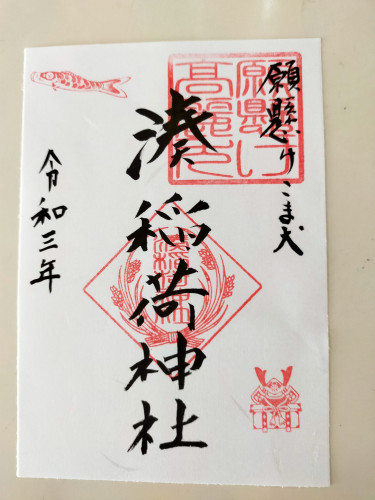 願懸けこま犬
願懸け高麗犬
湊稲荷神社
湊稲荷神社
令和三年